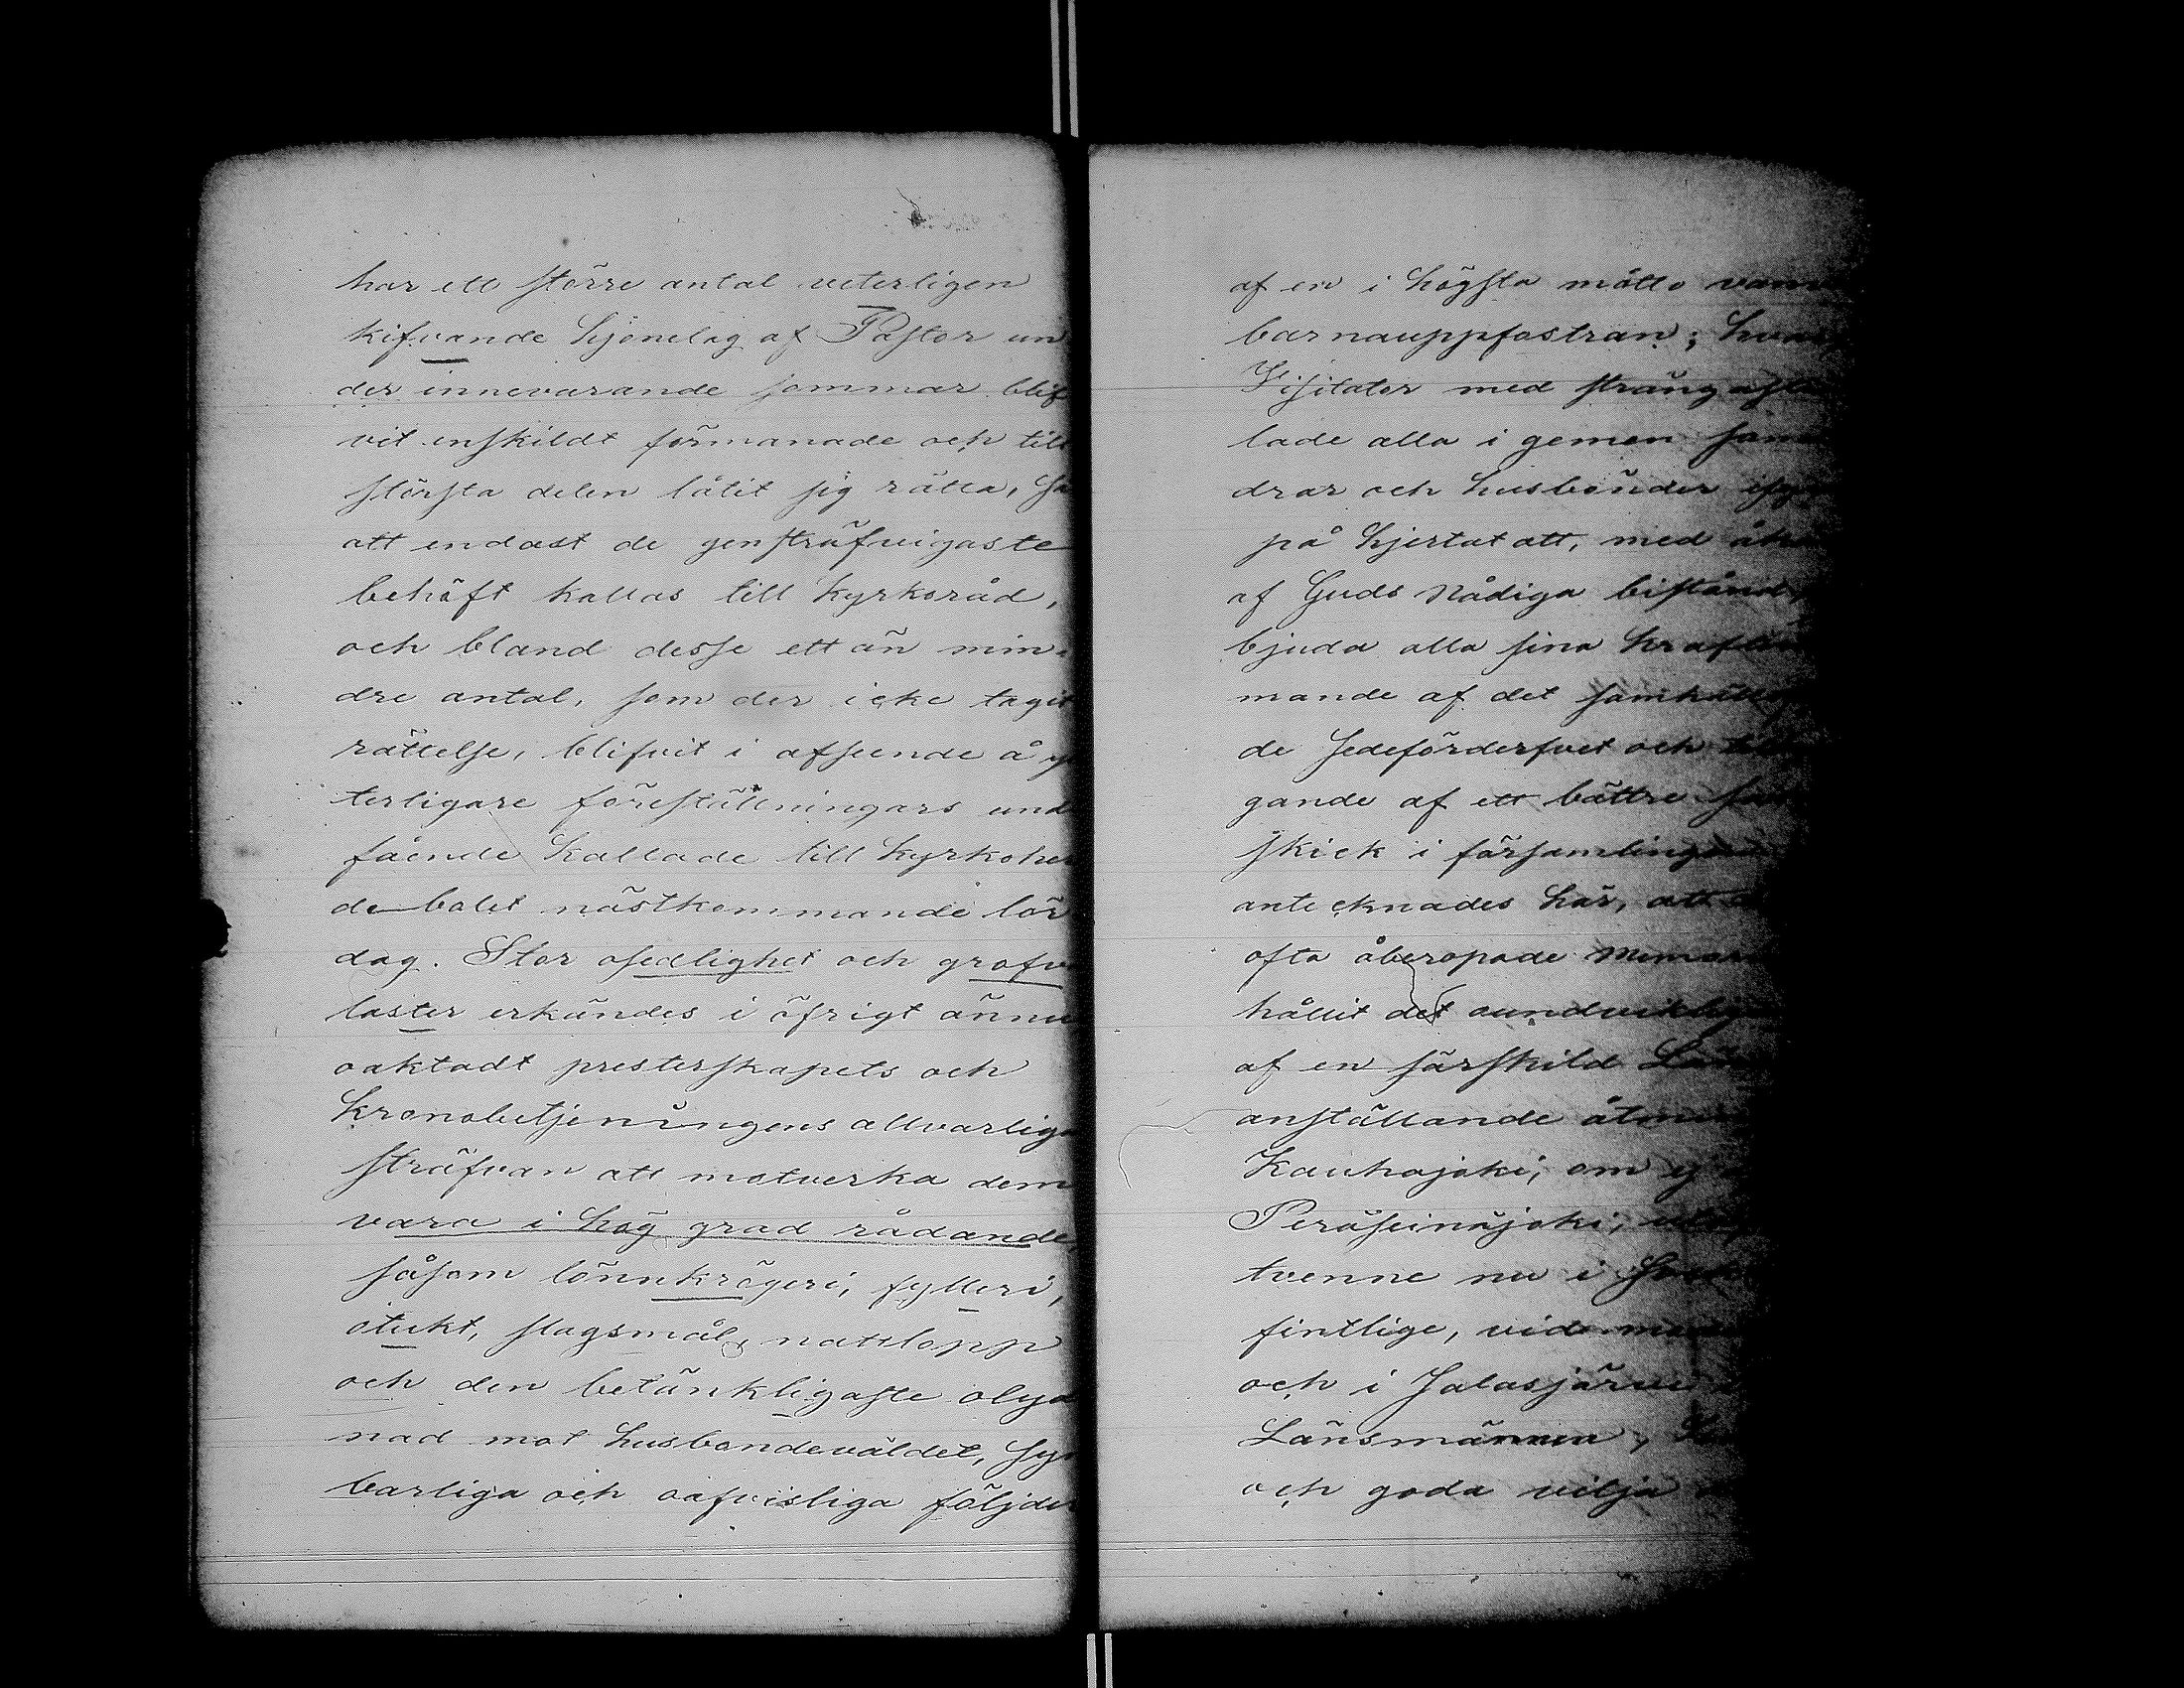 har ett större antal veterligen
kifvande hjonelag af Pastor un
der innevarande sommar blif
vit enskildt förmanade och till
största delen låtit sig rätta, så
att endast de gensträfvigaste
behöft kallas till kyrkoråd,
och bland desse ett än min-
dre antal, som der icke tagit
rättelse, blifvit i afseende å y
terligare föreställningars und
fående kallade till Kyrkoher
debolet nästkommande lör
dag. Stor osedlighet och grofva
laster erkändes i öfrigt ännu
oaktadt presterskapets och
Kronobetjeningens allvarliga
sträfvan att motverka dem
vara i hög grad rådande,
såsom lönnkrögeri, fylleri,
otukt, slagsmål, nattlopp
och den betänkligaste olyd
nad mot husbondeväldet, syn
barliga och oafvisliga följder
af en i högsta måtto
barnauppfostran;
Visitator med
lade alla i gemen
drar och husbönder
på hjertat att, med
af Guds Nådiga bistånd,
bjuda alla sina
mande af det
de sedeförderfvet och
gande af ett bättre
skick i församlingen
antecknades här, att
ofta åberopade
hållit det
af en särskild
anställande
Kauhajoki, om ej
Peräseinäjoki,
tvenne nu i
fintlige, vid
och i Jalasjärvi
Länsmännen,
och goda vilja